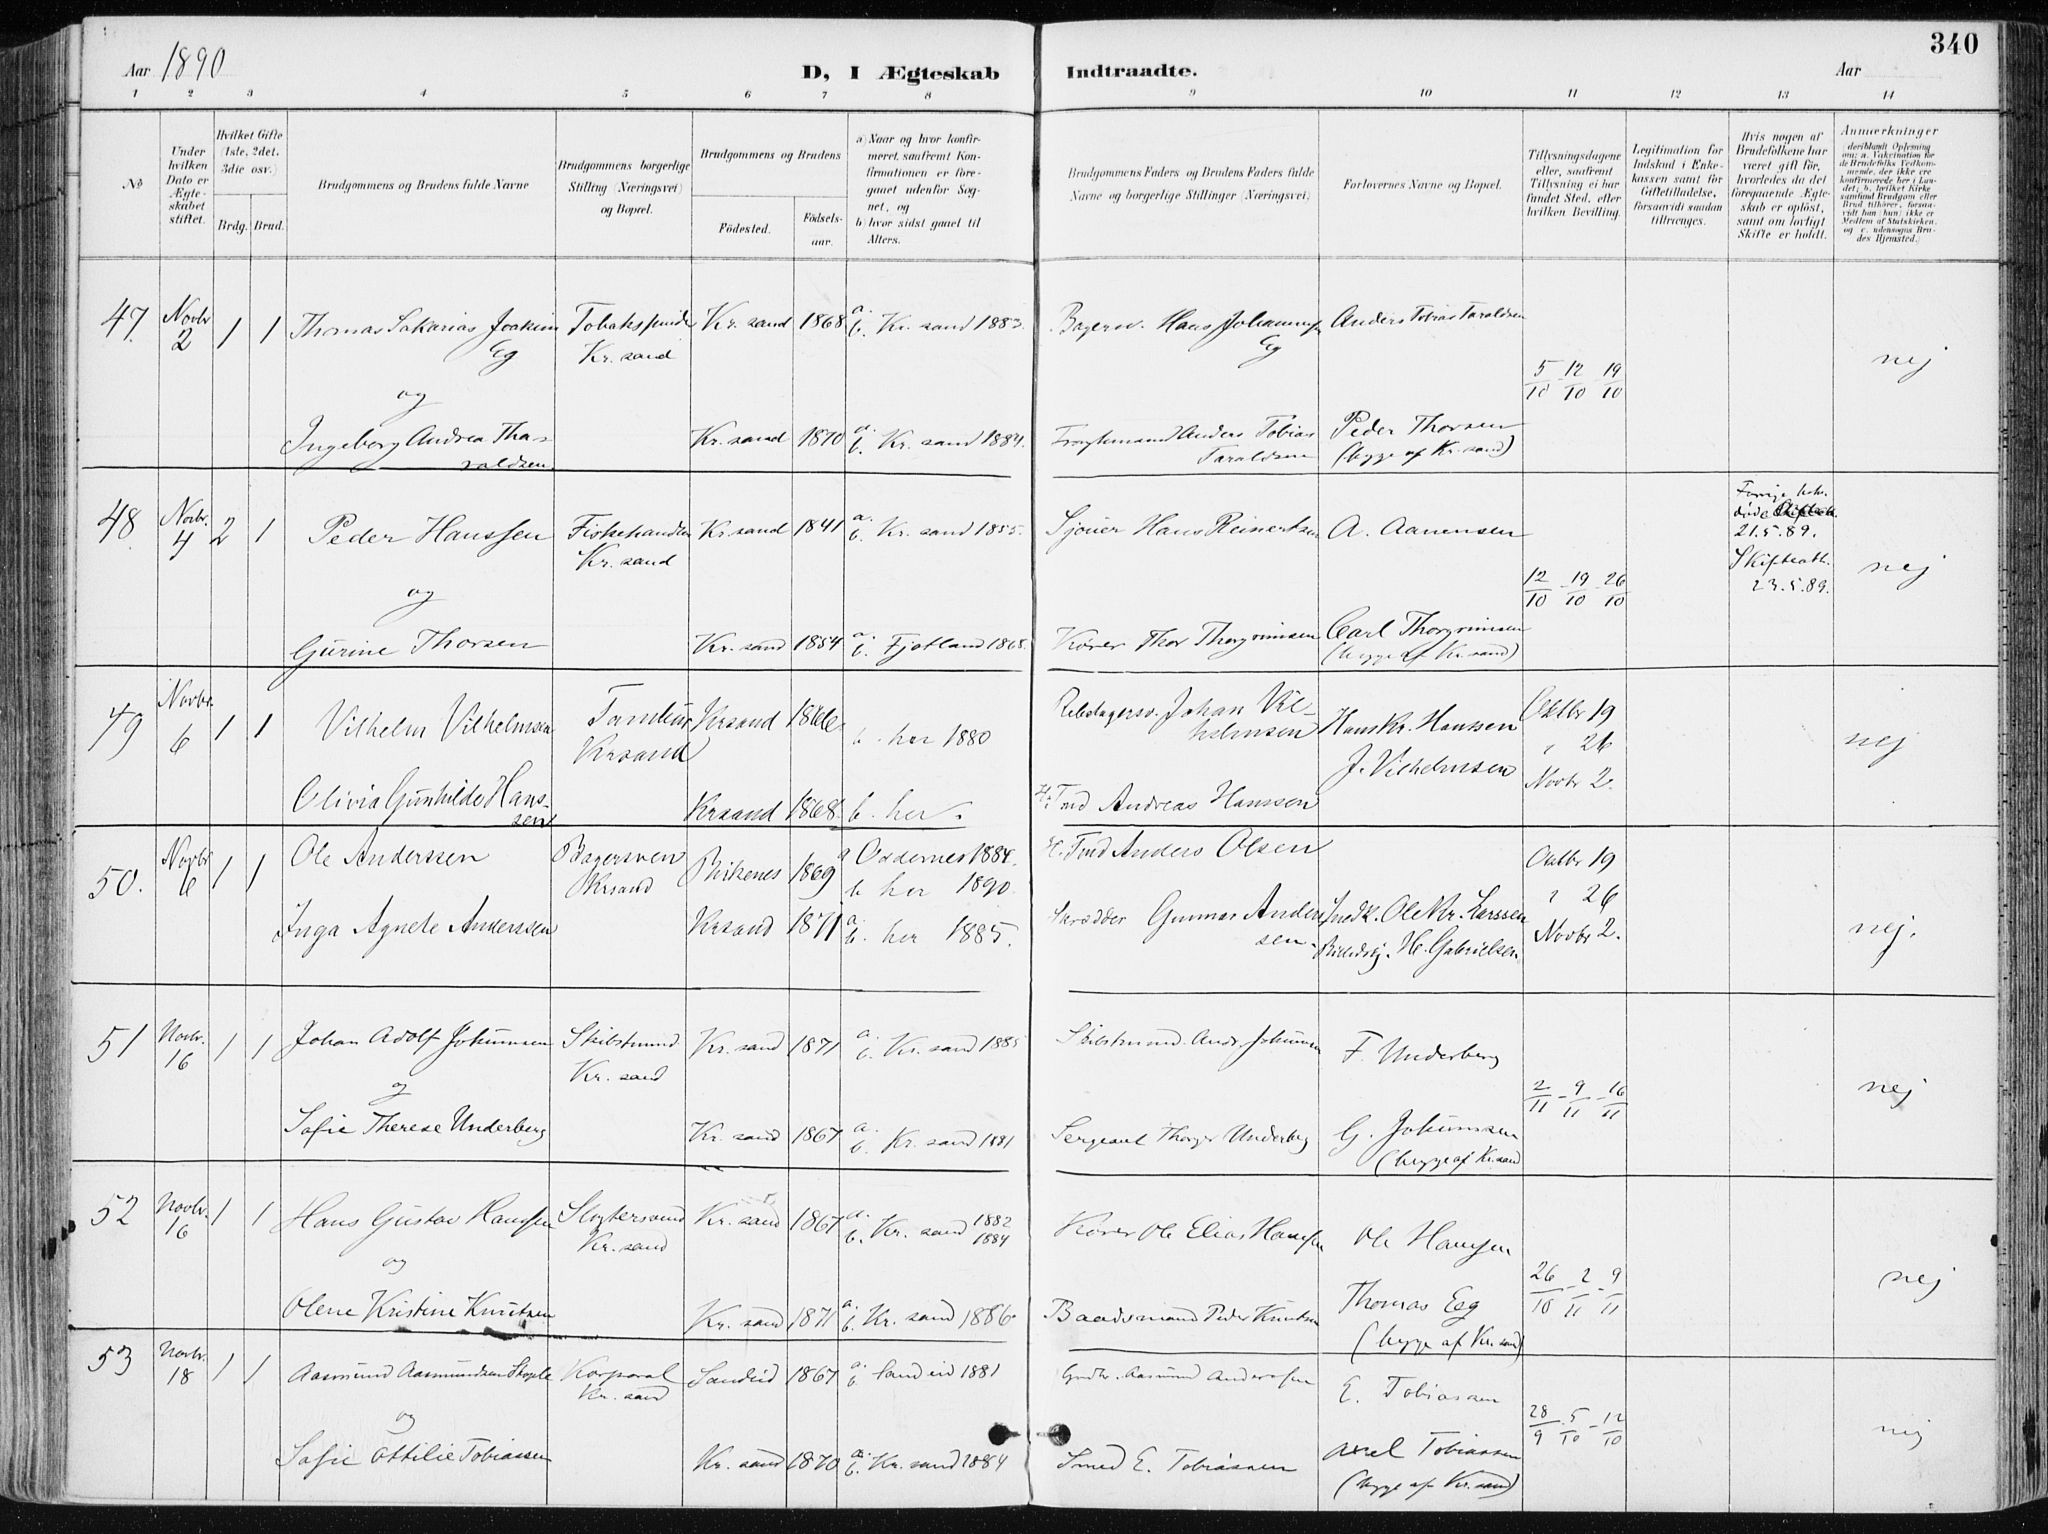 Aar 1890
D, I Ægteskab Indtraadte.
Aar
340
1 2 3 4 5 6 7 8 9 10 11 12 13 14
No
Under hvilken Dato er Ægteskabet stiftet.
Hvilket Gifte (1ste, 2det, 3die osv.)
Brdg. Brud.
Brudgommens og Brudens fulde Navne
Brudgommens borgerlige Stilling (Næringsvei) og Bopæl.
Brudgommens og Brudens
Födested.
Födsels-aar.
a) Naar og hvor konfirmeret, saafremt Konfirmationen er foregaaet udenfor Sognet, og
b) hvor sidst gaaet til Alters.
Brudgommens Faders og Brudens Faders fulde Navne og borgerlige Stillinger (Næringsvei)
Forlovernes Navne og Bopæl.
Tillysningsdagene eller, saafremt Tillysning ei har fundet Sted, efter hvilken Bevilling.
Legitimation for Indskud i Enkekassen samt for Giftetilladelse, forsaavidt saadan tiltrænges.
Hvis nogen af Brudefolkene har været gift för, hvorledes da det foregaaende Ægteskab er oplöst, samt om lovligt Skifte er holdt.
Anmærkninger (deriblandt Oplysning om: a. Vakcination for de Brudefolks Vedkommende, der ikke ere konfirmerede her i Landet; b. hvilket Kirkesamfund Brudgom eller Brud tilhører, forsaavidt han (hun) ikke er Medlem af Statskirken, og c. udensogns Brudes Hjemsted.)
47. Novbr 2 1 1 Thomas Sakarias Joakim Eg Kr. sand Kr. sand 1868 a. b. Kr. sand 1883. Bagersv. Hans Eg Anders Tobias Taraldsen
5/10 - 12/10 - 19/10 nej
og
Ingeborg Andrea Tharaldsen Kr. sand 1870 a. b. Kr. sand 1884. Anders Tobias Taraldsen Peder Thorsen (begge af Kr. sand)
48. Novbr. 4 2 1 Peder Hanssen Fiskehandler Kr. sand Kr. sand 1841 a. b. Kr. sand 1855. Sjouer Hans Reinertsen A. Aanensen
21.5.89. Skifteatt. 23.5.89.
12/10 - 19/10 - 26/10 nej
og
Gurine Thorsen Kr. sand 1854 a. b. Fjotland 1868. Kører Thor Thorgrimsen Carl Thorgrimsen (begge af Kr. sand)
49 Novbr. 6 1 1 Vilhelm Vilhelmsen Krsand Krsand 1866 b. her 1880 Johan Vilhelmsen Hans Kr. Hanssen Oktbr 19
" 26
J. Vilhelmsen Novbr 2. nej
Olivia Gunhilde Hanssen Krsand 1868. b. her. Andreas Hanssen
50. Novbr 6 1 1 Ole Anderssen Bagersven Krsand Birkenes 1869 a Oddernes 1884. b. her 1890. Anders Olsen Oktbr 19
" 26
Inga Agnete Anderssen Krsand 1871 a. b. her 1885. Skrædder Gunnar Andersen. Snedk. Ole Kr. Larssen H. Gabrielsen. Novbr 2. nej.
51 Novbr. 16 1 1 Johan Adolf Johnnsen Skibstmmd Kr. sand Kr. sand 1871 a. b. Kr. sand 1885 F. Underberg
2/11 - 9/11 - 16/11 nej
og
Sofie Therese Underberg Kr. sand 1867 a. b. Kr. sand 1881 Sergeant Thorger Underberg G. Johnnsen (begge af Kr. sand
52 Novbr. 16 1 1 Hans Gustav Hanssen Slagtersvend Kr. sand Kr. sand 1867 a. b. Kr. sand 1882 1884 Kører Ole Elias Hanssen Ole Hanssen
26/10 - 2/11 - 9/11 nej
og
Olene Kristine Knutsen Kr. sand 1871 a. b. Kr. sand 1886. Baadsmand Peder Knutsen Thomas Eeg (begge af Kr. sand)
53 Novbr. 18 1 1 Aasmund Aasmundsen Korporal Kr. sand Sandeid 1867 a. b. Sandeid 1881 Gmdbr. Aasmund Anderssen E. Tobiassen
28/9 - 5/10 - 12/10 nej
og
Sofie Ottilie Tobiassen Kr. sand 1870 a. b. Kr. sand 1884 Smed E. Tobiassen Axel Tobiassen (begge af Kr. sand)